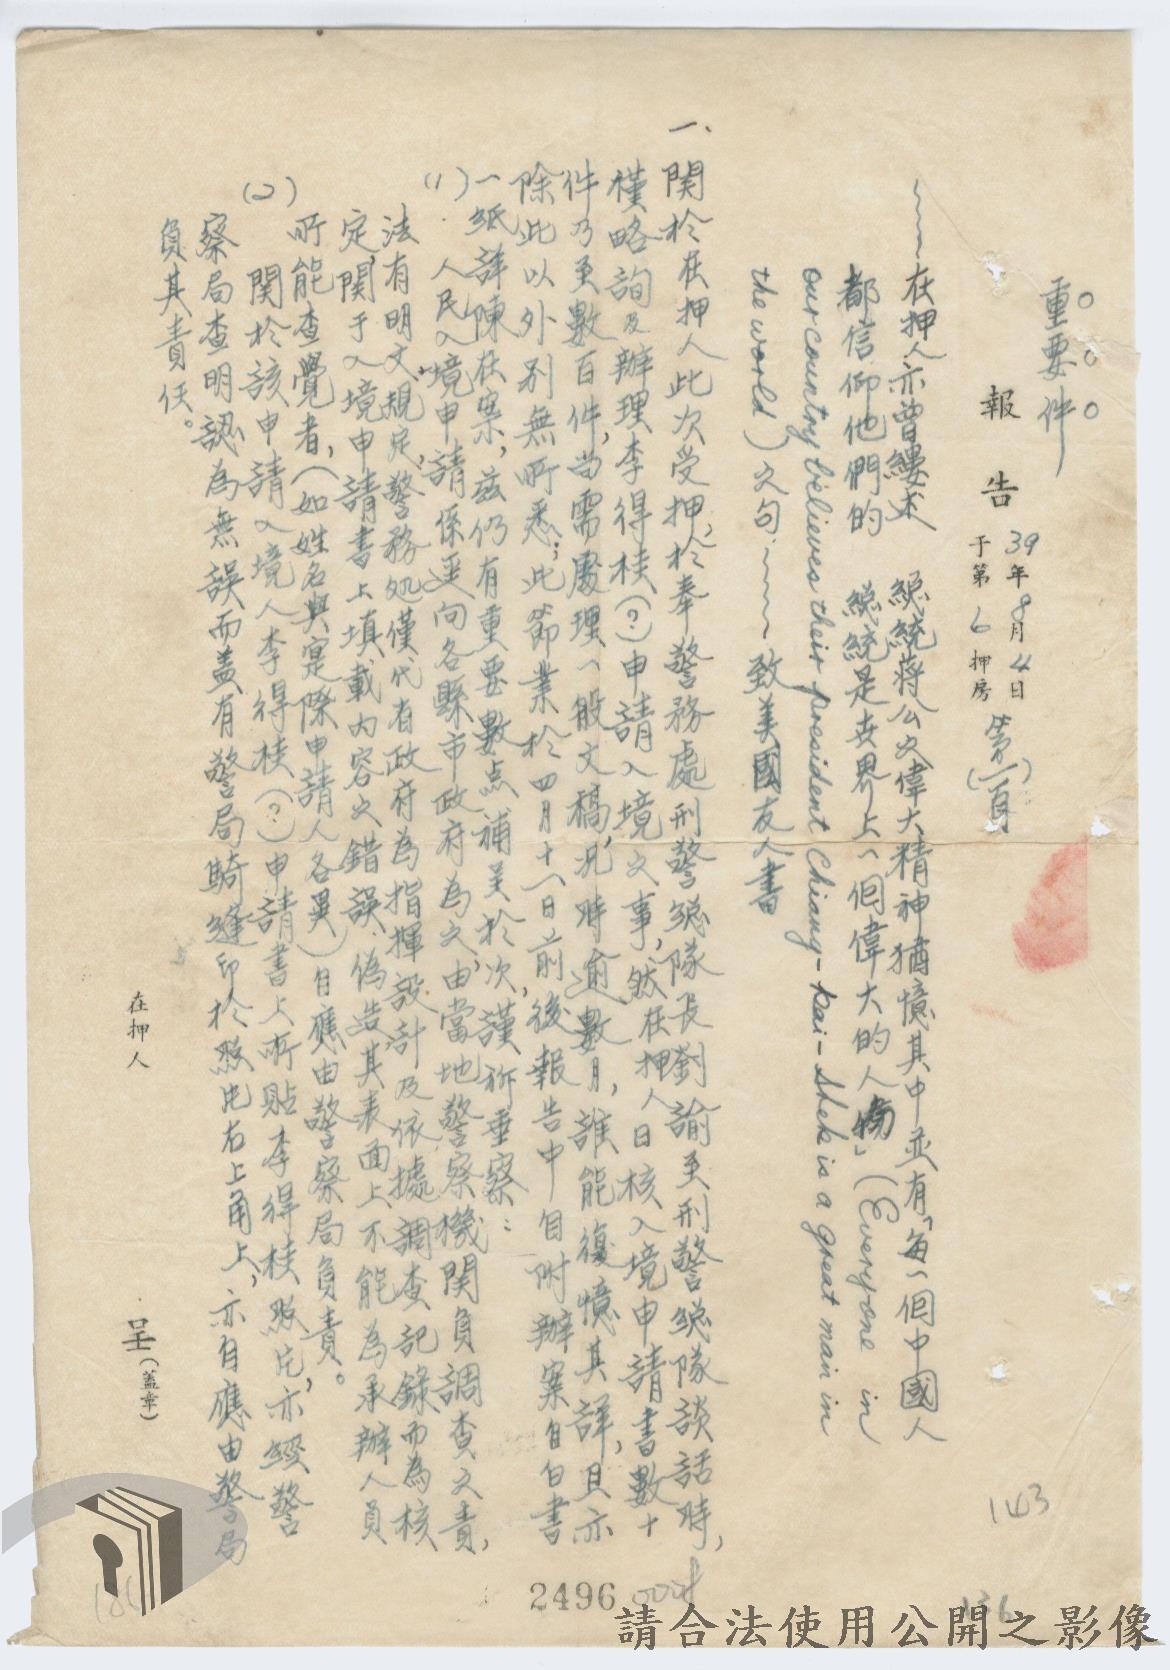 重要件
報告
39年8月4日
于第6押房
第(一)頁
在押人亦曾縷述 總統蔣公之偉大精神猶憶其中並有「每一個中國人
都信仰他們的 總統是世界上一個偉大的人物」(Everyone in
our country believes their president Chiang-kai-Shek is a great man in
the world)文句 致美國友人書
一、關於在押人此次受押,於奉警務處刑警總隊長劉諭至刑警總隊談話時,
僅略詢及辦理李得桂(?)申請入境之事,然在押人日核入境申請書數十
件乃至數百件,尚需處理一般文稿,況時逾數月,誰能復憶其詳,且亦
除此以外別無所悉;此節業於四月十八日前後報告中自附辦案自白書
一紙詳陳在案,茲仍有重要數点補呈於次,謹祈垂察:
(1)人民入境申請係逕向各縣市政府為之,由當地警察機関負調查之責,
法有明文規定,警務処僅代省政府為指揮設計及依據調查記錄而為核
定,関于入境申請書上填載內容之錯誤、偽造其表面上不能為承辦人員
所能查覺者,(如姓名與實際申請人各異)自應由警察局負責。
(2)関於該申請入境人李得桂(?)申請書上所貼李得桂照片,亦經警
察局查明認為無誤而蓋有警局騎縫印於照片右上角上,亦自應由警局
負其責任。
在押人
呈(蓋章)
143
136
2496
請合法使用公開之影像